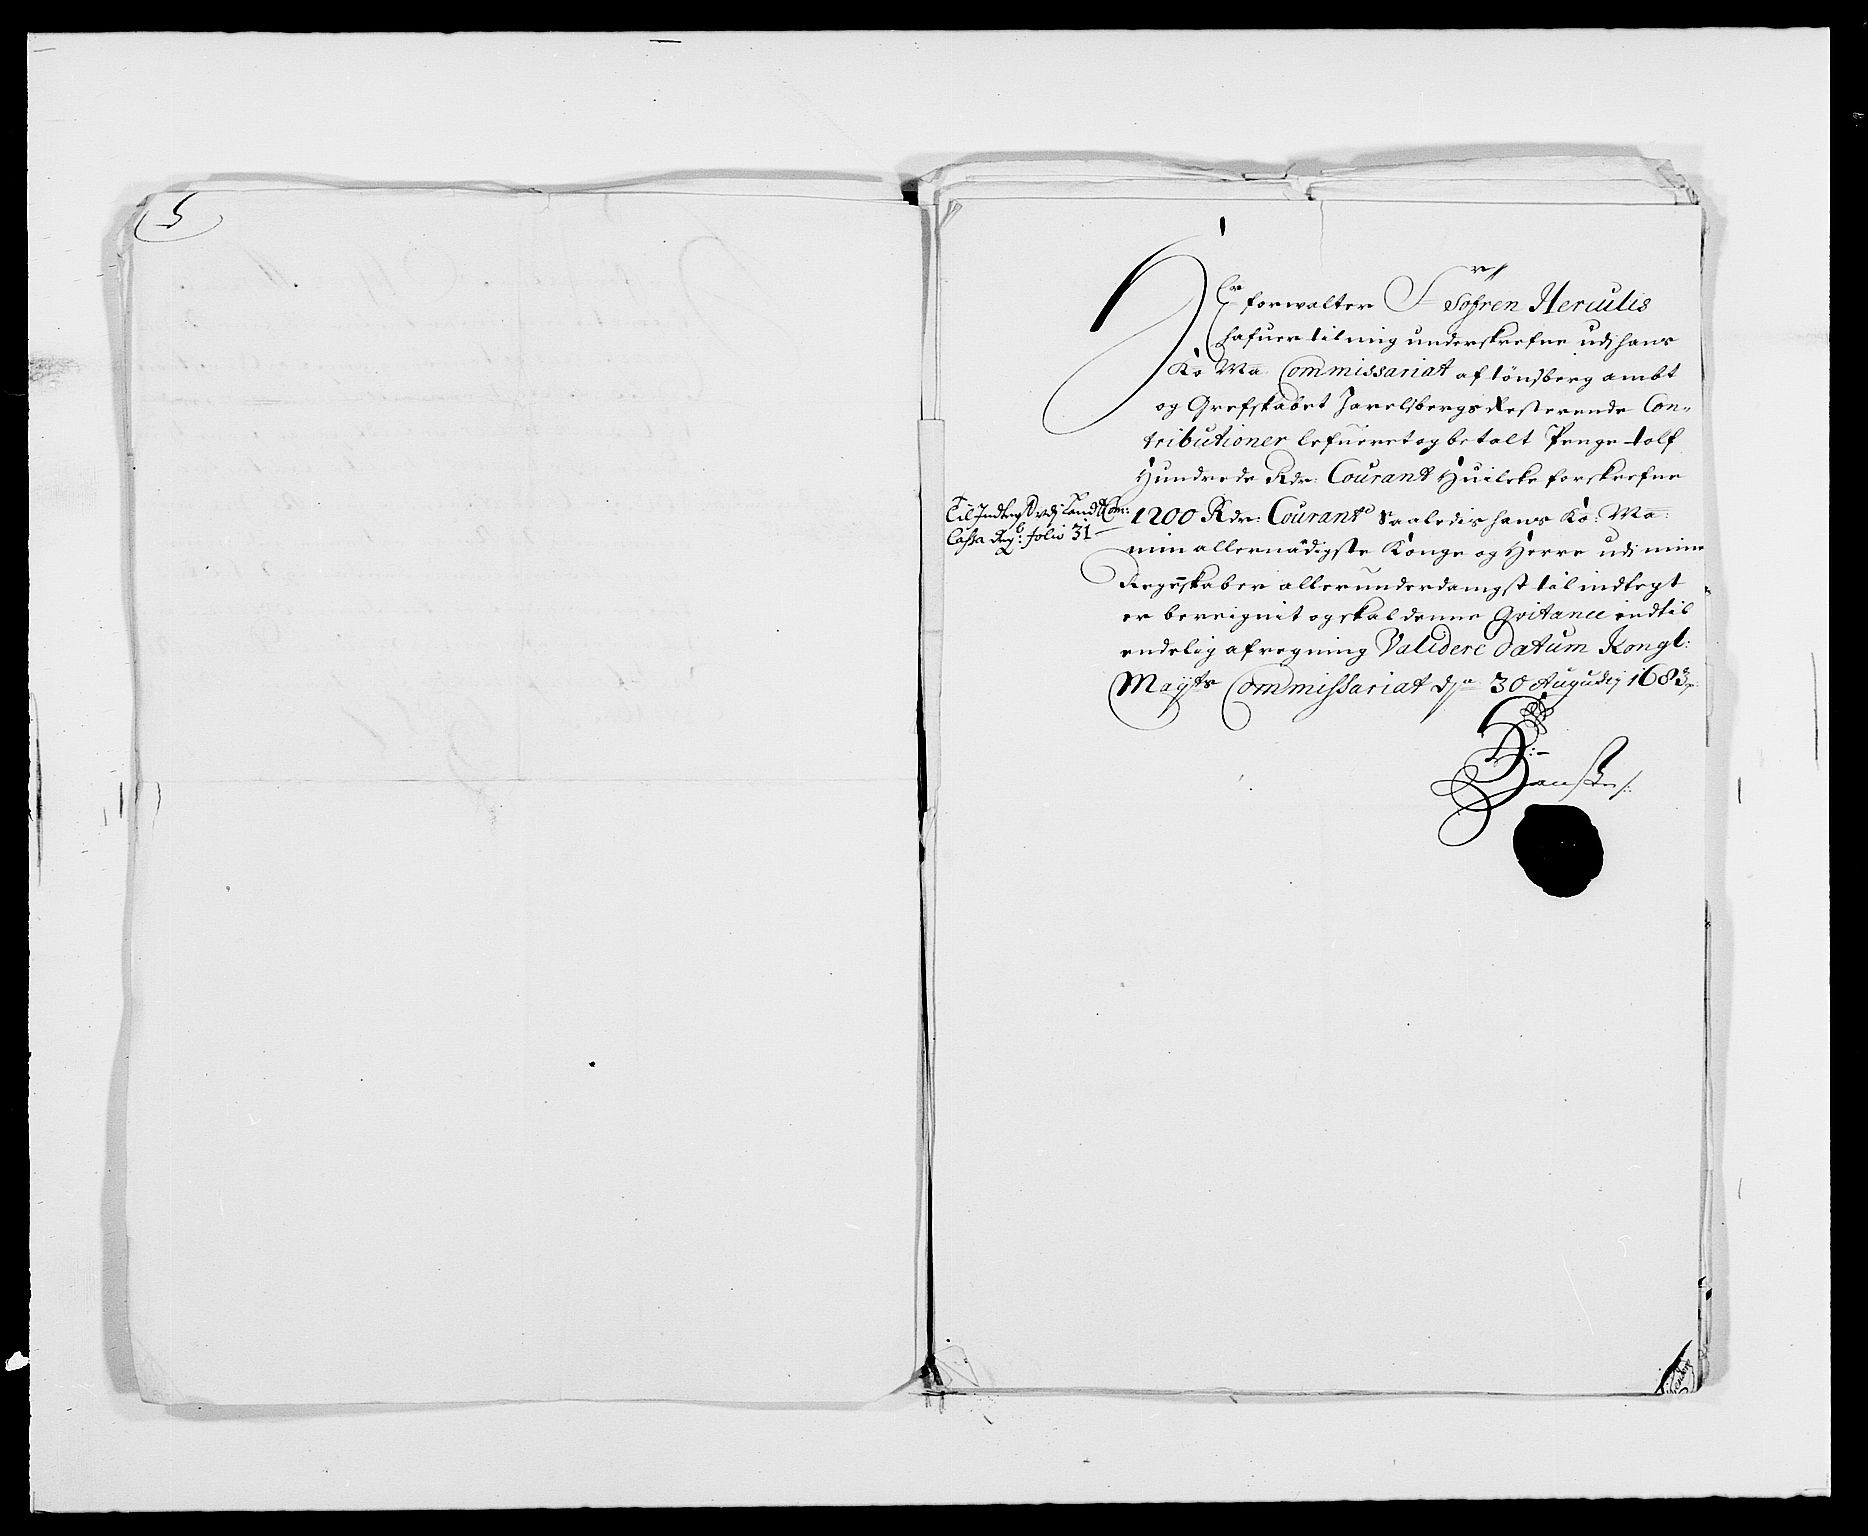 5
forwalter Sr Søfren Herculis
hafuer til mig underskrefne udj hans
Ko Ma Commissariat af Tønsberg ambt
og Grefskabet Jarelsbergs Resterende Con-
tributioner lefueret og betalt Penge tolf
Hundrede Rdr: Courant Huilcke forskrefne
1200 Rdr: Courant Saaledis hans Ko: Ma:
min allernådigste Konge og Herre udi mine
Regnskaber allerunderdanigst til indtegt
er bereignit og skal denne Qvitance indtil
endelig afregning Validere Datum Kongl:
Mayts Commissariat d 30 Augustj 1683
Til Indtegt udj Land Com:
Cassa Reg: folio 31
Hansen